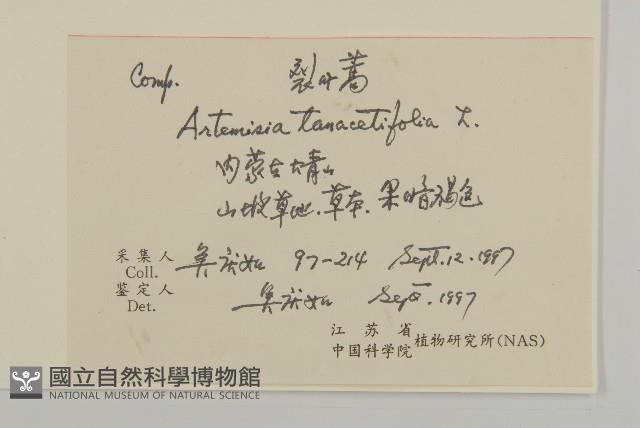 Comp. 裂叶蒿
Artemisia tanacetifolia L.
内蒙古大青山
山坡草地、草本、果暗褐色
采集人 吴庆如 97-214 Sept. 12. 1997
Coll.
鉴定人 吴庆如 Sept. 1997
Det.
江苏省
中国科学院 植物研究所(NAS)
國立自然科學博物館
NATIONAL MUSEUM OF NATURAL SCIENCE